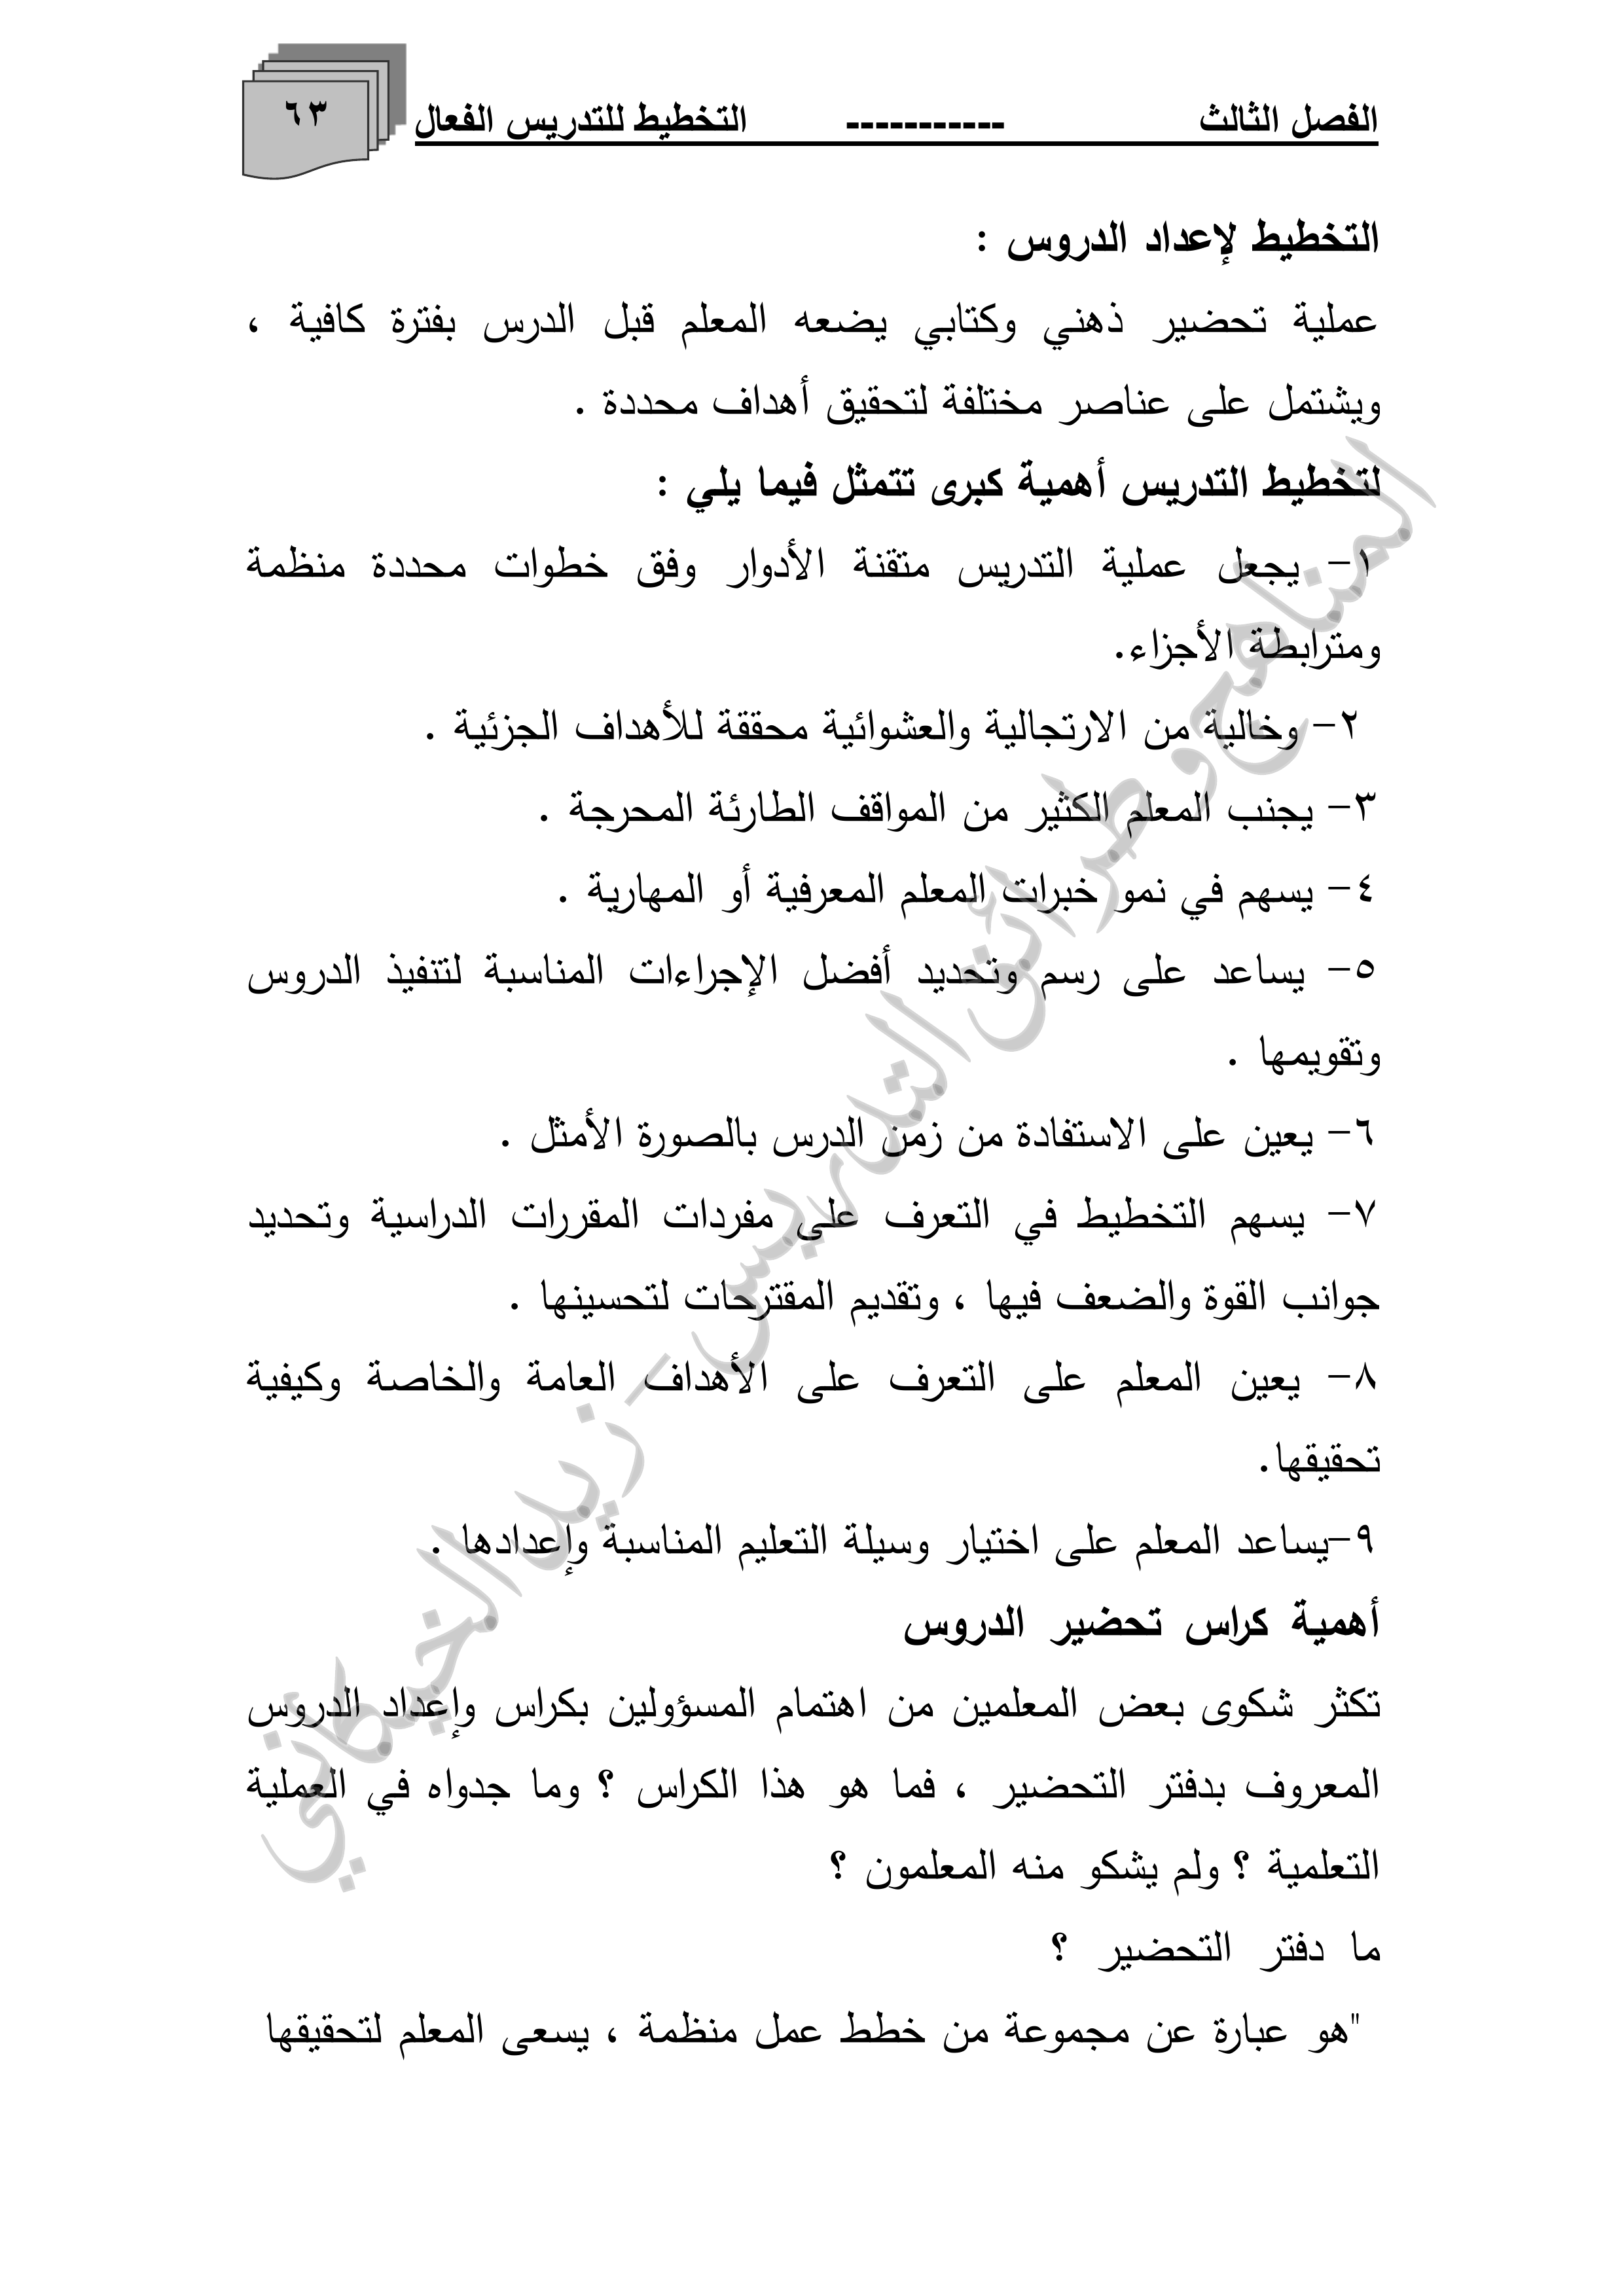 الفصل الثالث ----------- التخطيط للتدريس الفعال
٦٣
التخطيط لإعداد الدروس :
عملية تحضير ذهني وكتابي يضعه المعلم قبل الدرس بفترة كافية ،
ويشتمل على عناصر مختلفة لتحقيق أهداف محددة .
لتخطيط التدريس أهمية كبرى تتمثل فيما يلي :
١- يجعل عملية التدريس متقنة الأدوار وفق خطوات محددة منظمة
ومترابطة الأجزاء.
٢- وخالية من الارتجالية والعشوائية محققة للأهداف الجزئية .
٣- يجنب المعلم الكثير من المواقف الطارئة المحرجة .
٤- يسهم في نمو خبرات المعلم المعرفية أو المهارية .
٥- يساعد على رسم وتحديد أفضل الإجراءات المناسبة لتنفيذ الدروس
وتقويمها .
٦- يعين على الاستفادة من زمن الدرس بالصورة الأمثل .
٧- يسهم التخطيط في التعرف على مفردات المقررات الدراسية وتحديد
جوانب القوة والضعف فيها ، وتقديم المقترحات لتحسينها .
٨- يعين المعلم على التعرف على الأهداف العامة والخاصة وكيفية
تحقيقها.
٩-يساعد المعلم على اختيار وسيلة التعليم المناسبة وإعدادها .
أهمية كراس تحضير الدروس
تكثر شكوى بعض المعلمين من اهتمام المسؤولين بكراس وإعداد الدروس
المعروف بدفتر التحضير ، فما هو هذا الكراس ؟ وما جدواه في العملية
التعلمية ؟ ولم يشكو منه المعلمون ؟
ما دفتر التحضير ؟
"هو عبارة عن مجموعة من خطط عمل منظمة ، يسعى المعلم لتحقيقها
المناهج وطرائق التدريس - زيد الخيكاني